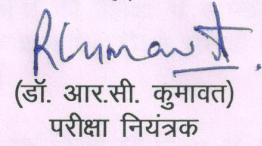 RKumawat
(डॉ. आर.सी. कुमावत)
परीक्षा नियंत्रक